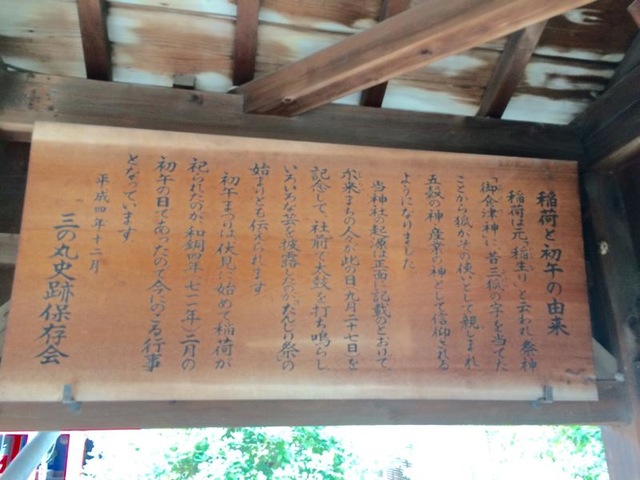 稲荷と初午の由来
稲荷は元、「稲生り」と云われ祭神
「御食津神」に昔三狐の字を当てた
ことから狐がその使いとして親しまれ
五穀の神、産業の神として信仰される
ようになりました
当神社の起源は正面に記載のとおりで
尓来まちの人々が此の日九月二十七日を
記念して、社前で太鼓を打ち鳴らし
いろいろな芸を披露したのがだんじり祭の
始まりとも伝えられます
初午まつりは伏見に始めて稲荷が
祀られたのが、和銅四年(七一一年)二月の
初午の日であったので今にのこる行事
となっています
平成四年十二月
三の丸史跡保存会